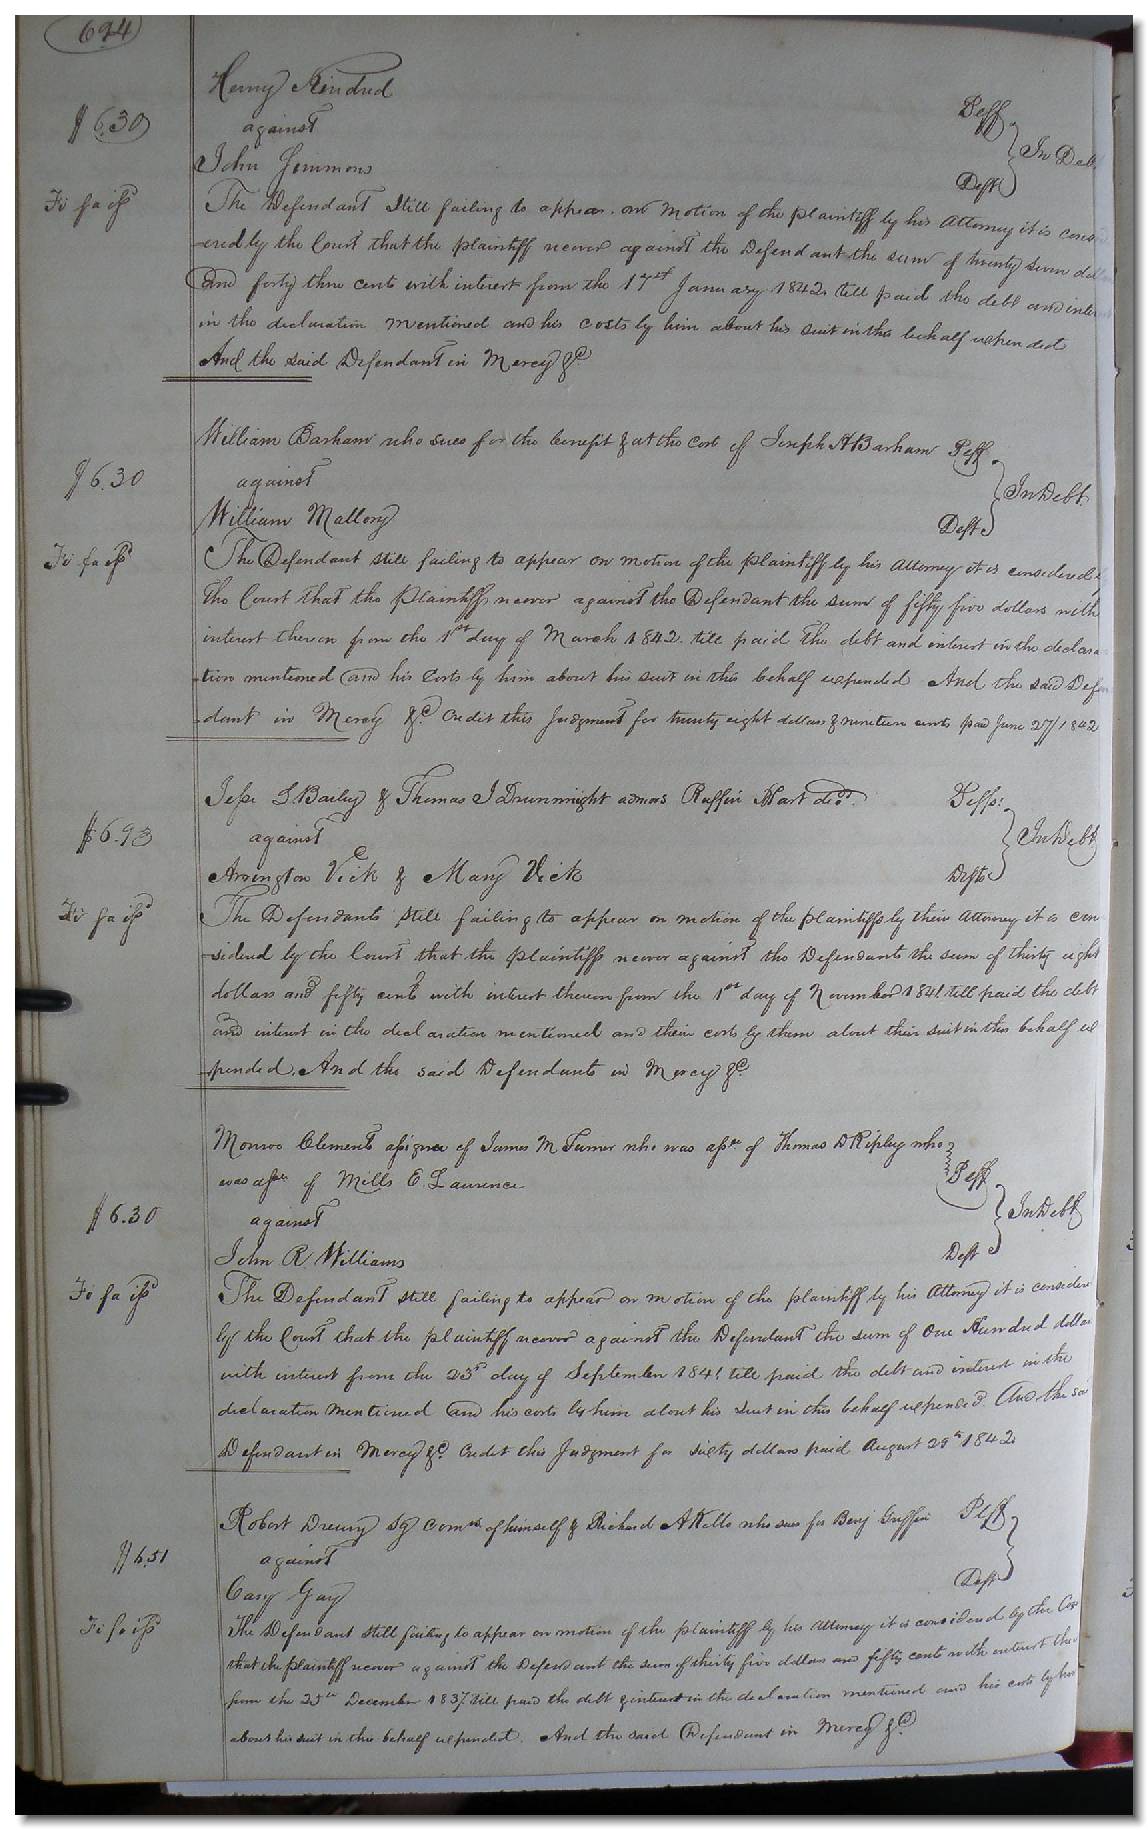 694
Henry Kindred
$6.30
against
Plff
Deft
In Deb
John Simmons
Fi fa iss
The Defendant Still failing to appear on motion of the plaintiff by his Attorney it is consid
ered by the Court that the plaintiff recover against the Defendant the sum of twenty seven dol
and forty three cents with interest from the 17th January 1842 till paid the debt and inter
in the declaration mentioned and his costs by him about his suit in this behalf expended
And the said Defendant in Mercy &c
William Barham who sues for the benefit & at the cost of Joseph A Barham Plff
$6.30
against
In Debt
William Mallory
Deft
Fi fa iss
The Defendant still failing to appear on motion of the plaintiff by his Attorney it is considered
the Court that the Plaintiff recover against the Defendant the sum of fifty five dollars with
interest thereon from the 1st day of March 1842 till paid the debt and interest in the declara
tion mentioned and his Costs by him about his suit in this behalf expended And the said Defen
dant in Mercy &c Credit this Judgment for twenty eight dollars & nineteen cents paid June 27/1842
Jesse L Barley & Thomas J Drewright admors Ruffin Hart decd
Plffs:
$6.93
against
In Debt
Arrington Vick & Mary Vick
Defts
Fi fa iss
The Defendants Still failing to appear on motion of the plaintiffs by their Attorney it is con
sidered by the Court that the plaintiffs recover against the Defendants the sum of thirty eight
dollars and fifty cents with interest thereon from the 1st day of November 1841 till paid the debt
and interest in the declaration mentioned and their costs by them about their suit in this behalf ex
pended. And the said Defendants in Mercy &c
Monroe Clements assignee of James M Turner who was asse of Thomas D Ripley who
was asse of Mills E Laurence
Plff
$6.30
against
In Debt
John R Williams
Deft
Fi fa iss
The Defendant still failing to appear on motion of the plaintiff by his Attorney it is consider
by the Court that the plaintiff recover against the Defendant the sum of One Hundred dollar
with interest from the 23d day of September 1841 till paid the debt and interest in the
declaration mentioned and his costs by him about his suit in this behalf expended. And the sai
Defendant in Mercy &c Credit this Judgment for sixty dollars paid August 29th 1842
Robert Drewry Sg Comr of himself & Richard A Kello who sues for Benj Griffin
Plff
$6.51
against
Cary Gay
Deft
Fi fa iss
The Defendant still failing to appear on motion of the plaintiff by his Attorney it is considered by the Cou
that the plaintiff recover against the Defendant the sum of thirty five dollars and fifty cents with interest the
from the 25th December 1837 till paid the debt & interest in the declaration mentioned and his costs by him
about his suit in this behalf expended. And the said Defendant in Mercy &c